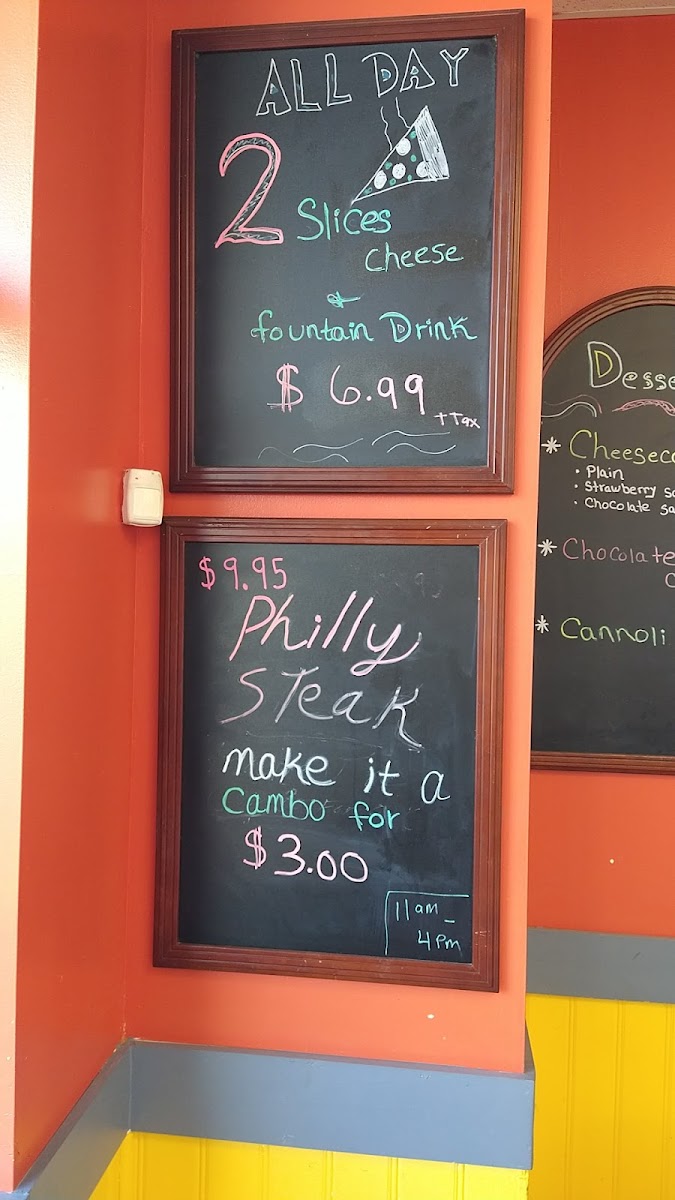 ALL DAY
2 Slices
Cheese
&
fountain Drink
$ 6.99
+ Tax
$9.95
Philly
STeak
make it a
Cambo for
$3.00
11am -
4pm
Desse
* Cheeseca
• Plain
• Strawberry sa
• Chocolate sa
* Chocolate
C
* Cannoli